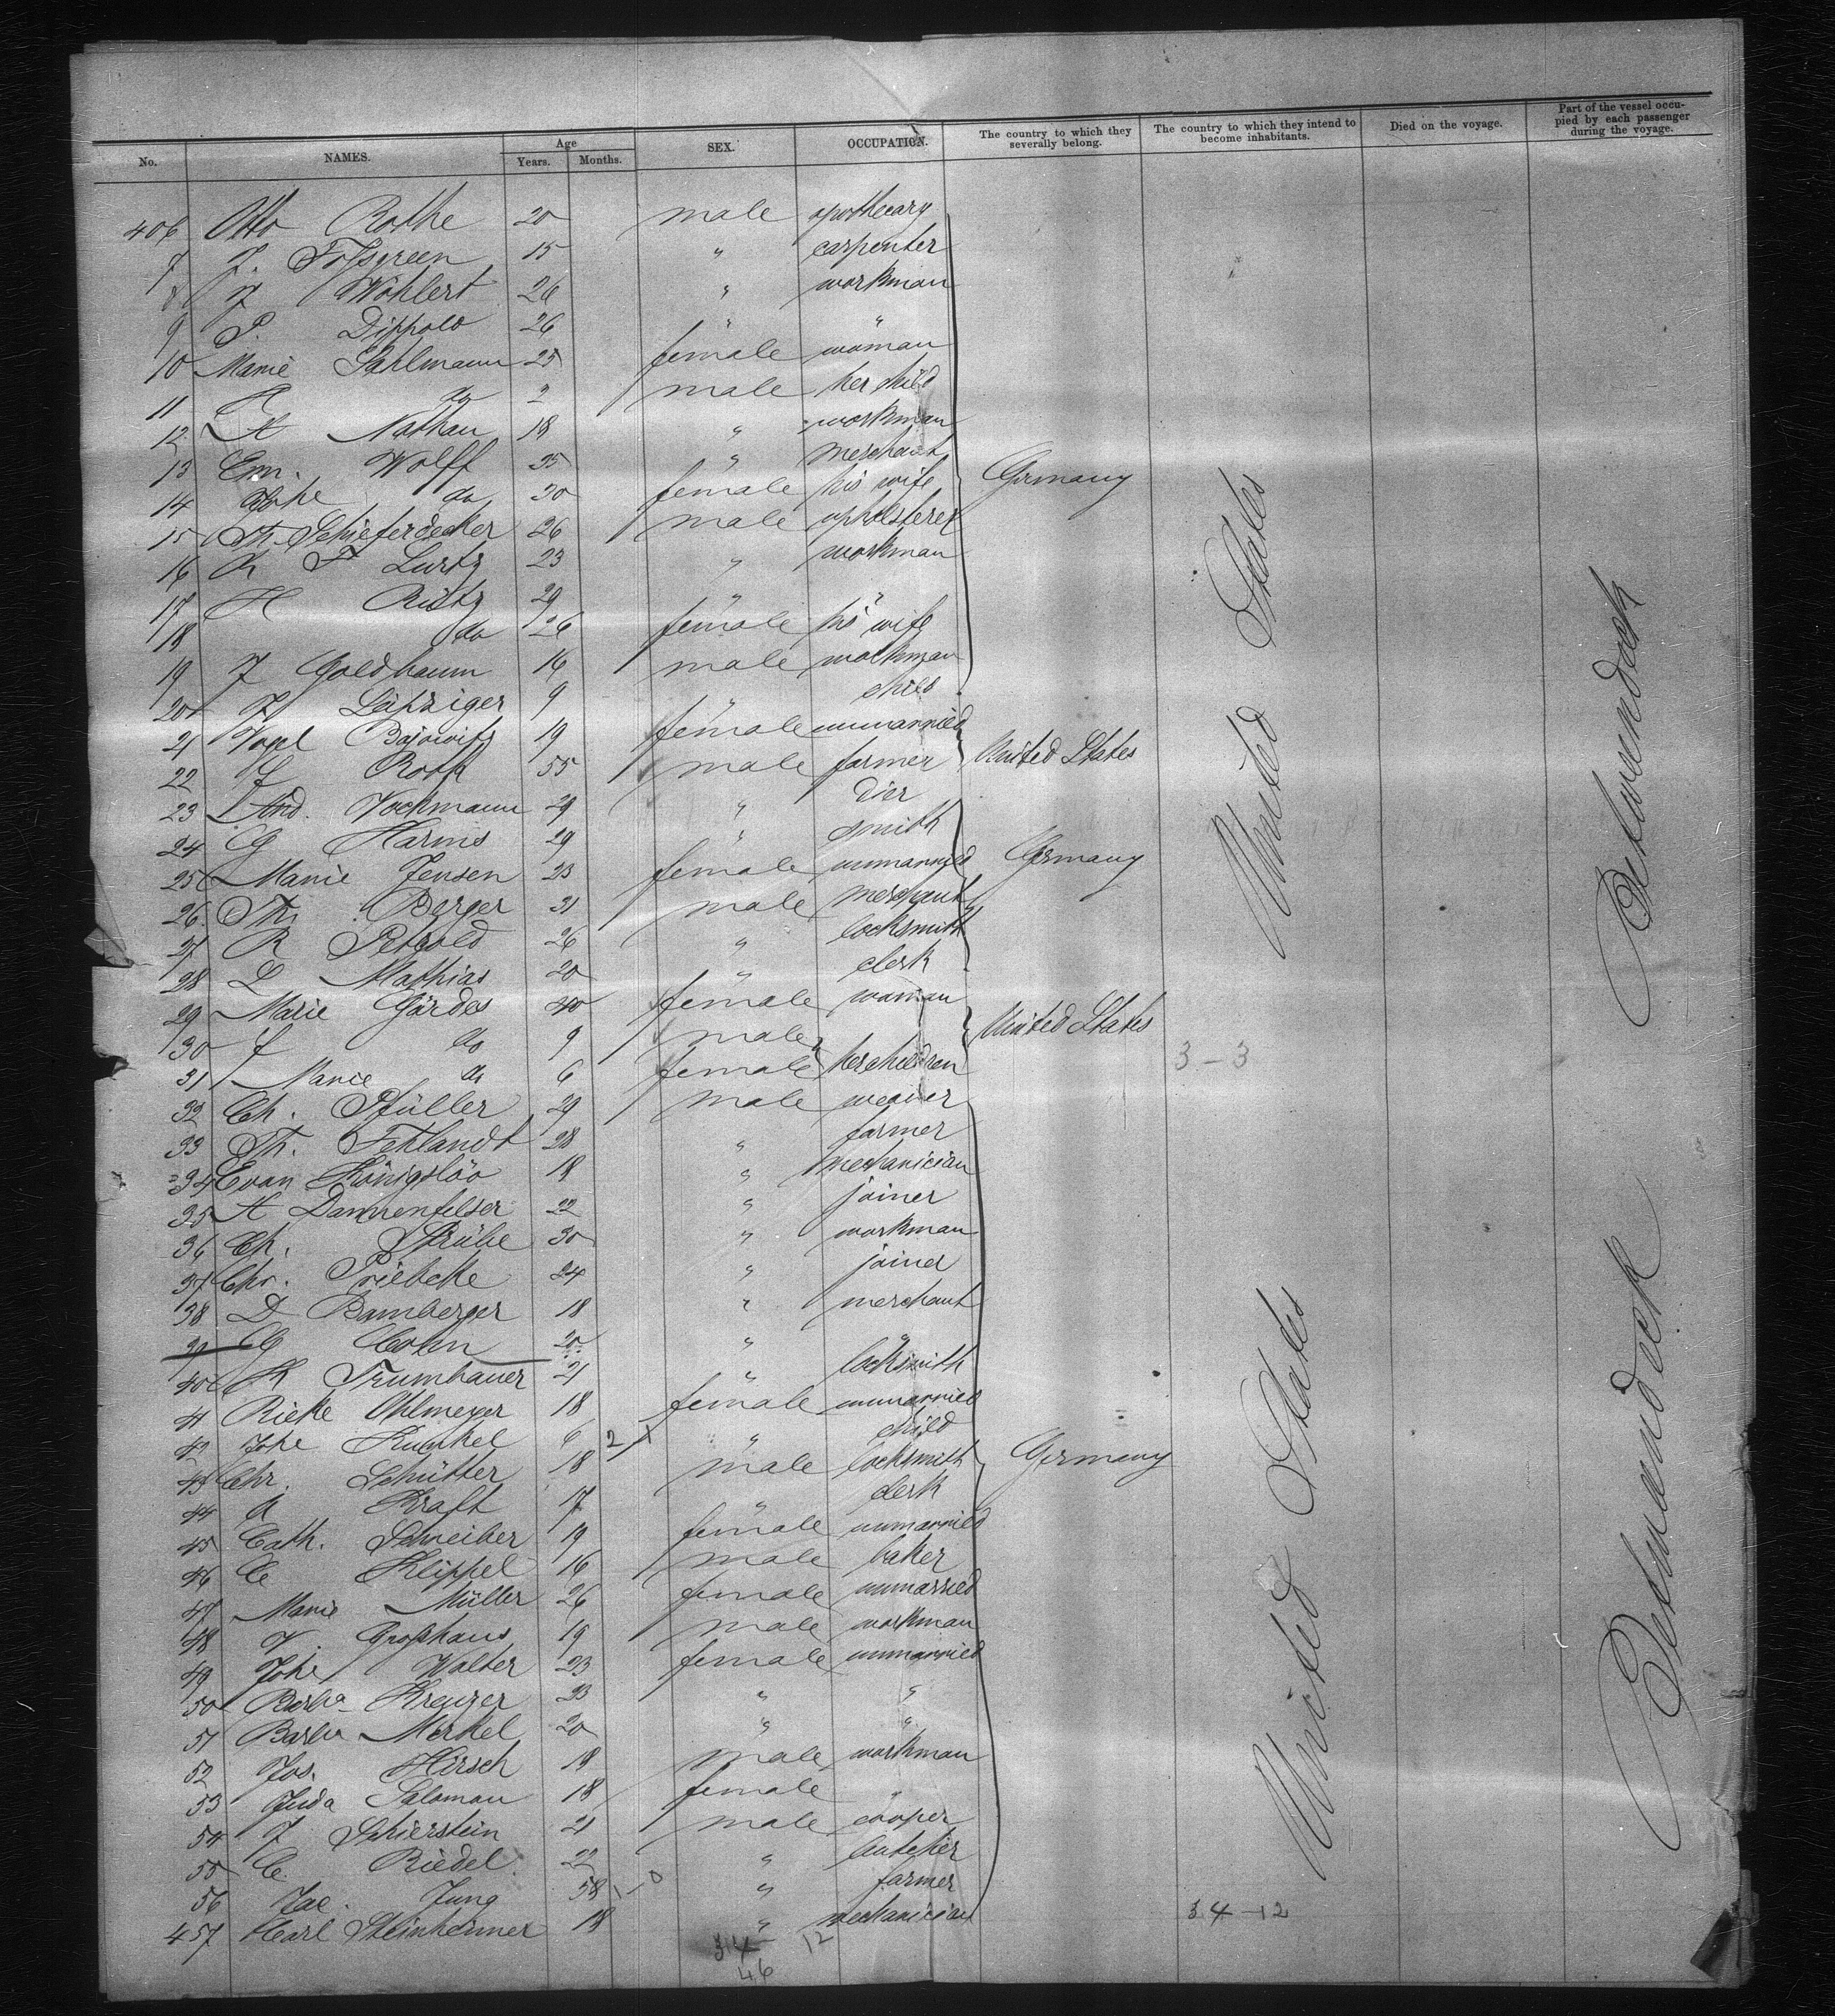 No. NAMES. Age Years. Months. SEX. OCCUPATION. The country to which they severally belong. The country to which they intend to become inhabitants. Died on the voyage. Part of the vessel occupied by each passenger during the voyage.
406 Otto Rothe 20 male apothecary
7 J. Forsgreen 15 " carpenter
8 J Wöhlert 26 " workman
9 P. Dippold 26 " "
10 Marie Sahlmann 25 female woman
11 do 2 male her child
12 A Nathan 18 " workman
13 Em. Wolff 35 " merchant
14 do 30 female his wife Germany
15 Th. Schieferdecker 26 male upholsterer
16 K F Lurtz 23 " workman
17 H Ristz 29 " "
18 do 26 female his wife
19 J Goldbaum 16 male workman
20 J Leipziger 9 " child
21 Vogel 19 female unmarried
22 J Roth 55 male farmer United States
23 And. Vockmann 29 " dier
24 G Harms 29 " smith
25 Marie Jensen 23 female unmarried Germany
26 Th. Berger 31 male merchant
27 R Petzold 26 " locksmith
28 L Mathias 20 " clerk
29 Marie Gördes 40 female woman
30 J do 9 male United States
31 Marie do 6 female her children 3-3
32 Ch. Pfüller 29 male weaver
33 Th. Fehlandt 28 " farmer
34 Evan Königslöv 18 " mechanician
35 A Dannenfelser 22 " joiner
36 Ch. Strübe 30 " workman
37 Chr. Priebcke 24 " joiner
38 D Bamberger 18 " merchant
39 G Cohn 20 " "
40 K Trumbauer 21 " locksmith
41 Rieke Uhlmeyer 18 female unmarried
42 Johe Kunkel 6 2 " child
43 Chr. Schütter 18 male locksmith Germany
44 A Kraft 17 " clerk
45 Cath. Schreiber 19 female unmarried
46 C Klippel 16 male baker
47 Marie Müller 26 female unmarried
48 V. Großhaus 19 male workman
49 Johe Walter 23 female unmarried
50 Barba Kreuzer 23 " "
51 Barba Merkel 20 " "
52 Jos. Hirsch 18 male workman
53 Juda Saloman 18 female "
54 J Schierstein 21 male cooper
55 C. Riedel 22 " butcher
56 Jac. Jung 58 1-0 " farmer
457 Carl Steinheimer 18 " mechanician 34-12
34 12
46
United States
United States
Betweendeck
Betweendeck